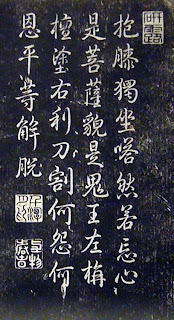 抱膝獨坐嗒然若忘心
是菩薩貌是鬼王左栴
檀塗右利刀割何怨何
恩平等解脫